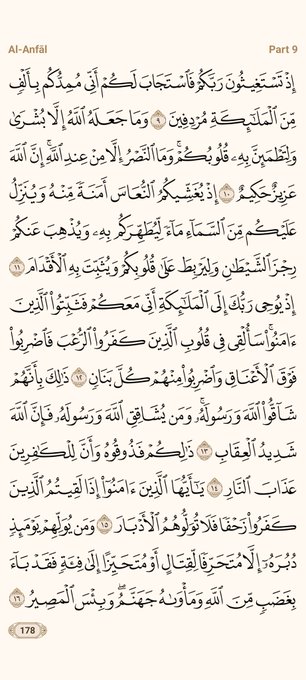 Al-Anfāl Part 9
إِذْ تَسْتَغِيثُونَ رَبَّكُمْ فَٱسْتَجَابَ لَكُمْ أَنِّى مُمِدُّكُم بِأَلْفٍ
مِّنَ ٱلْمَلَـٰٓئِكَةِ مُرْدِفِينَ ٩ وَمَا جَعَلَهُ ٱللَّهُ إِلَّا بُشْرَىٰ
وَلِتَطْمَئِنَّ بِهِۦ قُلُوبُكُمْ ۚ وَمَا ٱلنَّصْرُ إِلَّا مِنْ عِندِ ٱللَّهِ ۚ إِنَّ ٱللَّهَ
عَزِيزٌ حَكِيمٌ ١٠ إِذْ يُغَشِّيكُمُ ٱلنُّعَاسَ أَمَنَةً مِّنْهُ وَيُنَزِّلُ
عَلَيْكُم مِّنَ ٱلسَّمَآءِ مَآءً لِّيُطَهِّرَكُم بِهِۦ وَيُذْهِبَ عَنكُمْ
رِجْزَ ٱلشَّيْطَـٰنِ وَلِيَرْبِطَ عَلَىٰ قُلُوبِكُمْ وَيُثَبِّتَ بِهِ ٱلْأَقْدَامَ ١١
إِذْ يُوحِى رَبُّكَ إِلَى ٱلْمَلَـٰٓئِكَةِ أَنِّى مَعَكُمْ فَثَبِّتُوا۟ ٱلَّذِينَ
ءَامَنُوا۟ ۚ سَأُلْقِى فِى قُلُوبِ ٱلَّذِينَ كَفَرُوا۟ ٱلرُّعْبَ فَٱضْرِبُوا۟
فَوْقَ ٱلْأَعْنَاقِ وَٱضْرِبُوا۟ مِنْهُمْ كُلَّ بَنَانٍ ١٢ ذَٰلِكَ بِأَنَّهُمْ
شَآقُّوا۟ ٱللَّهَ وَرَسُولَهُۥ ۚ وَمَن يُشَاقِقِ ٱللَّهَ وَرَسُولَهُۥ فَإِنَّ ٱللَّهَ
شَدِيدُ ٱلْعِقَابِ ١٣ ذَٰلِكُمْ فَذُوقُوهُ وَأَنَّ لِلْكَـٰفِرِينَ
عَذَابَ ٱلنَّارِ ١٤ يَـٰٓأَيُّهَا ٱلَّذِينَ ءَامَنُوٓا۟ إِذَا لَقِيتُمُ ٱلَّذِينَ
كَفَرُوا۟ زَحْفًا فَلَا تُوَلُّوهُمُ ٱلْأَدْبَارَ ١٥ وَمَن يُوَلِّهِمْ يَوْمَئِذٍ
دُبُرَهُۥٓ إِلَّا مُتَحَرِّفًا لِّقِتَالٍ أَوْ مُتَحَيِّزًا إِلَىٰ فِئَةٍ فَقَدْ بَآءَ
بِغَضَبٍ مِّنَ ٱللَّهِ وَمَأْوَىٰهُ جَهَنَّمُ ۖ وَبِئْسَ ٱلْمَصِيرُ ١٦
178